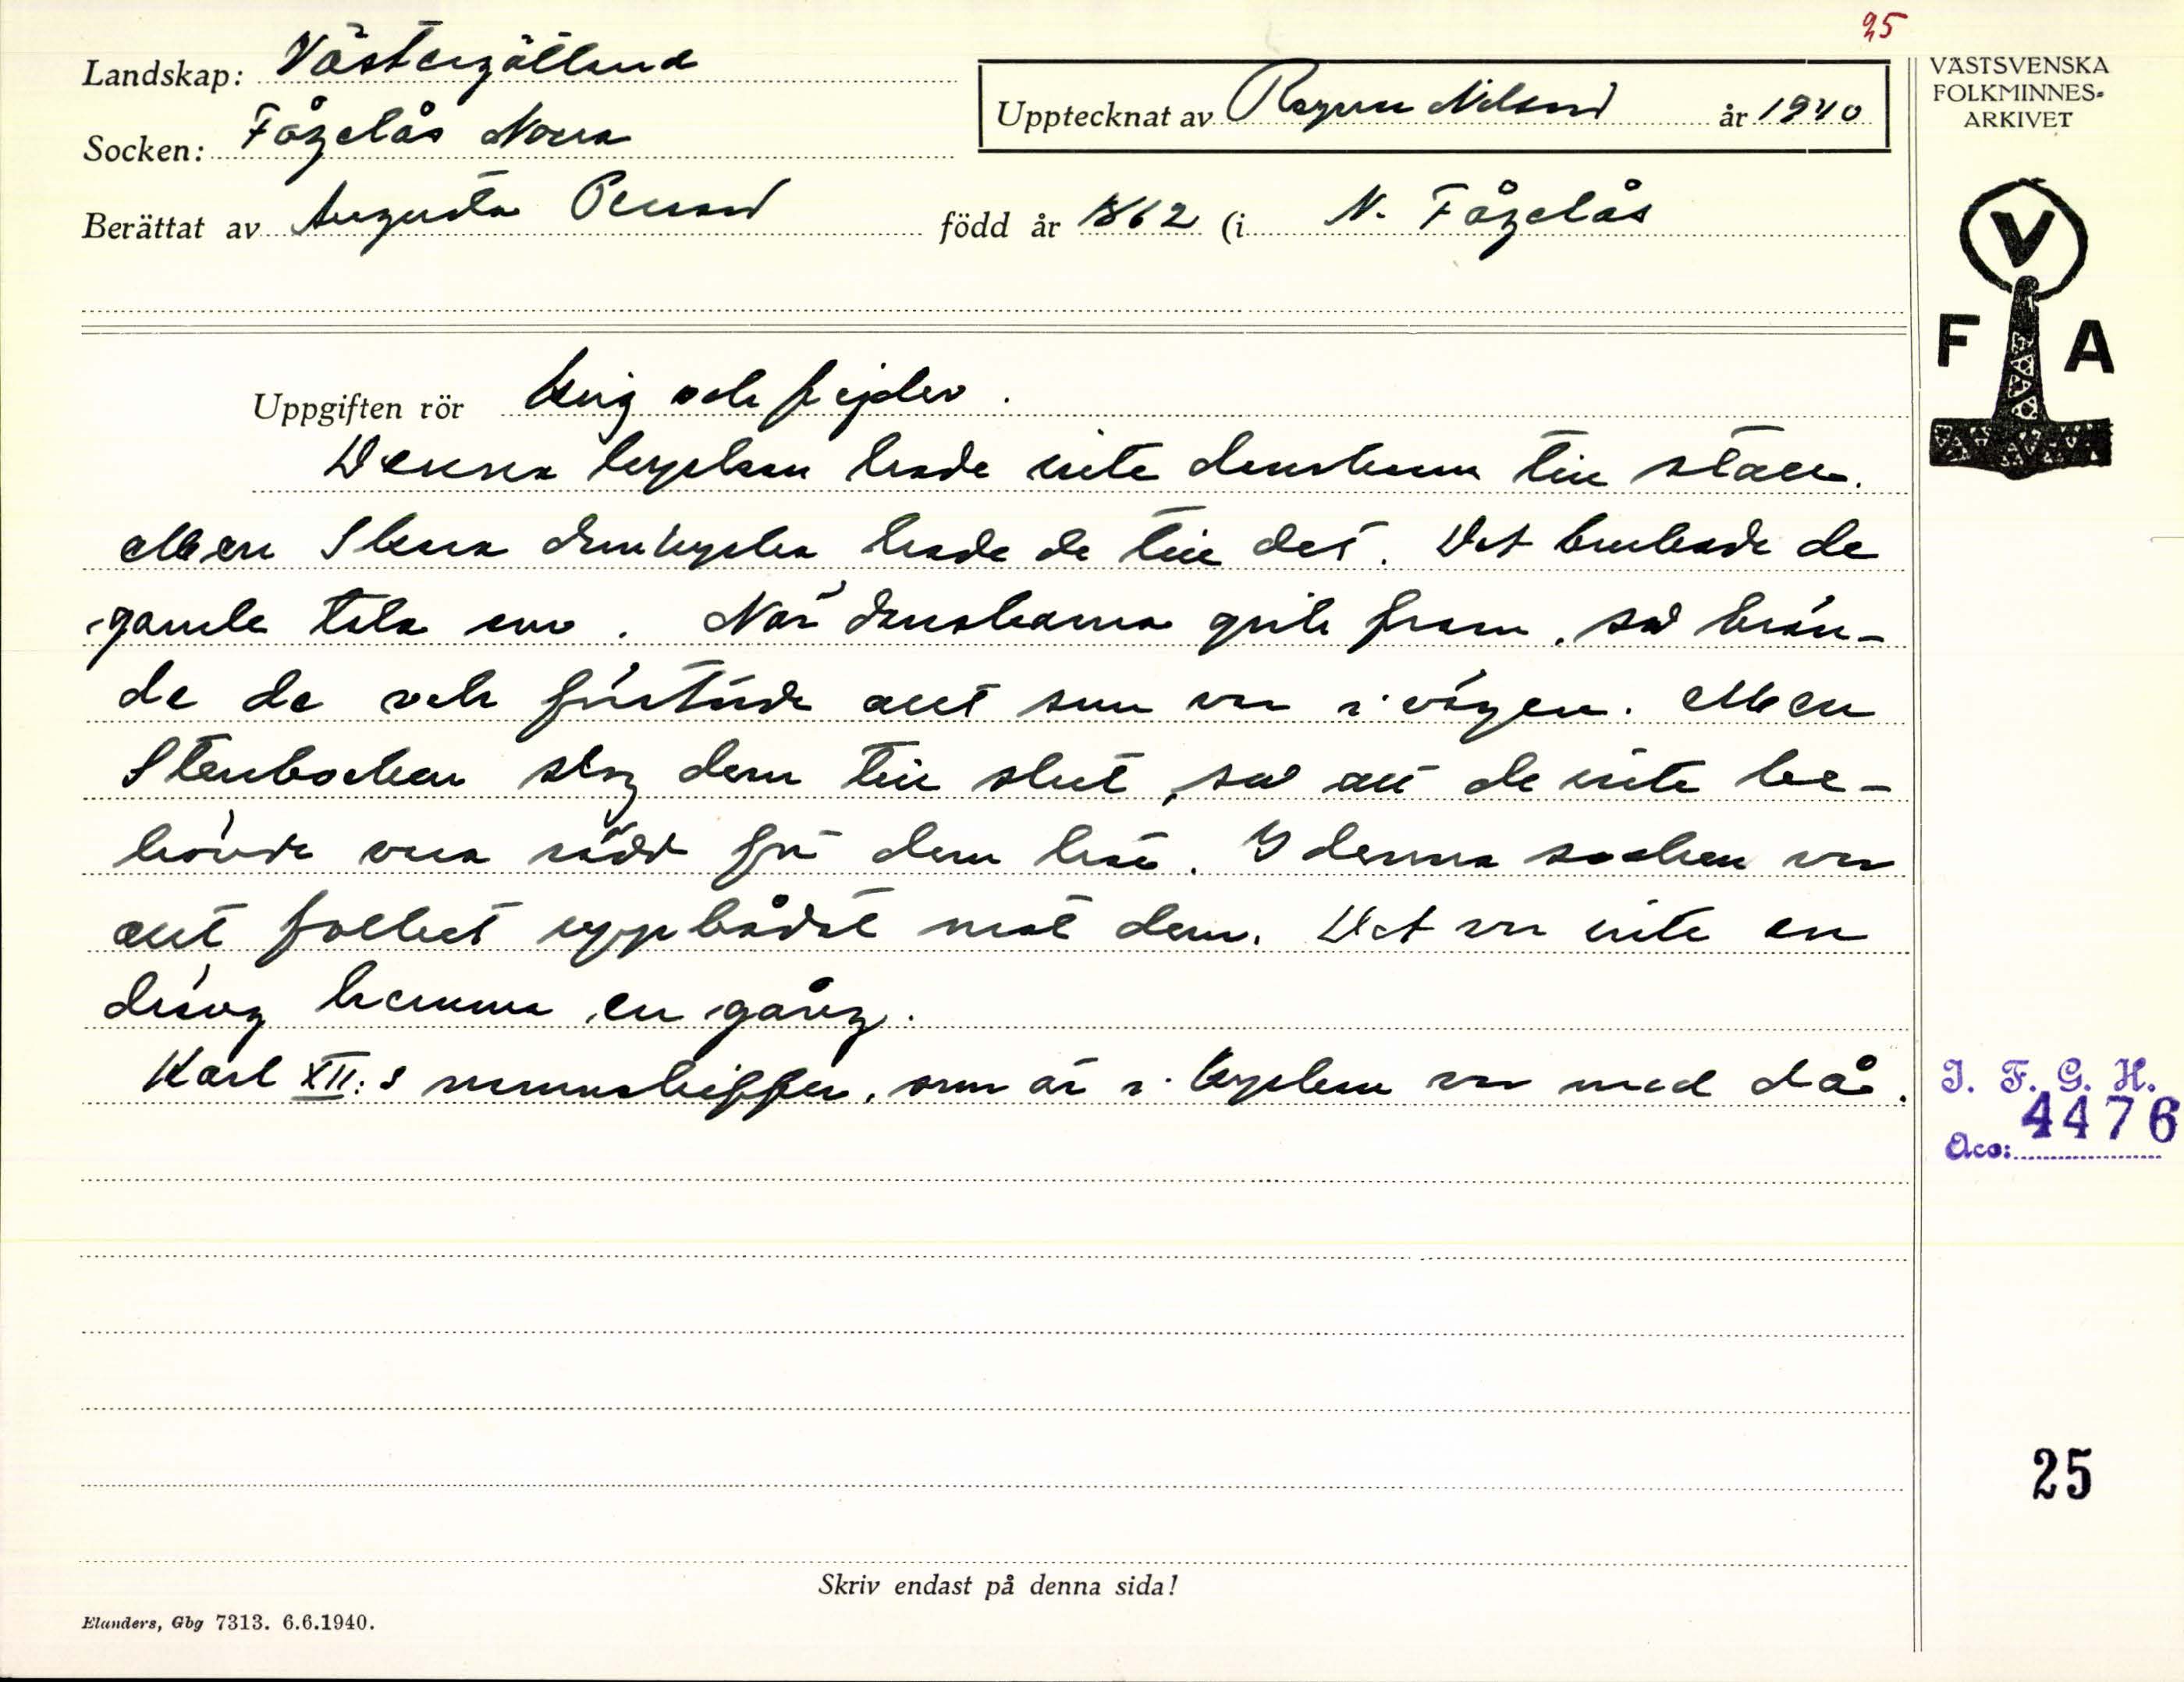 25
Landskap: Västergötland
Socken: Fågelås Norra
Upptecknat av Ragnar Nilsson år 1940
Berättat av Augusta Persson född år 1862 (i N. Fågelås
VÄSTSVENSKA
FOLKMINNES-
ARKIVET
V
F A
Uppgiften rör Krig och fejder.
Denna kyrkan hade inte danskarna till stall.
Men Skara domkyrka hade de till det. Det brukade de
gamla tala om. När danskarna gick fram, så brän-
de de och förstörde allt som var i vägen. Men
Stenbocken slog dem till slut, så att de inte be-
hövde vara rädd för dem här. I denna socken var
allt folket uppbådat mot dem. Det var inte en
dräng hemma en gång.
Karl XII:s namnchiffer, som är i kyrkan var med då.
I. F. G. H.
Acc: 4476
25
Skriv endast på denna sida!
Elanders, Gbg 7313. 6.6.1940.